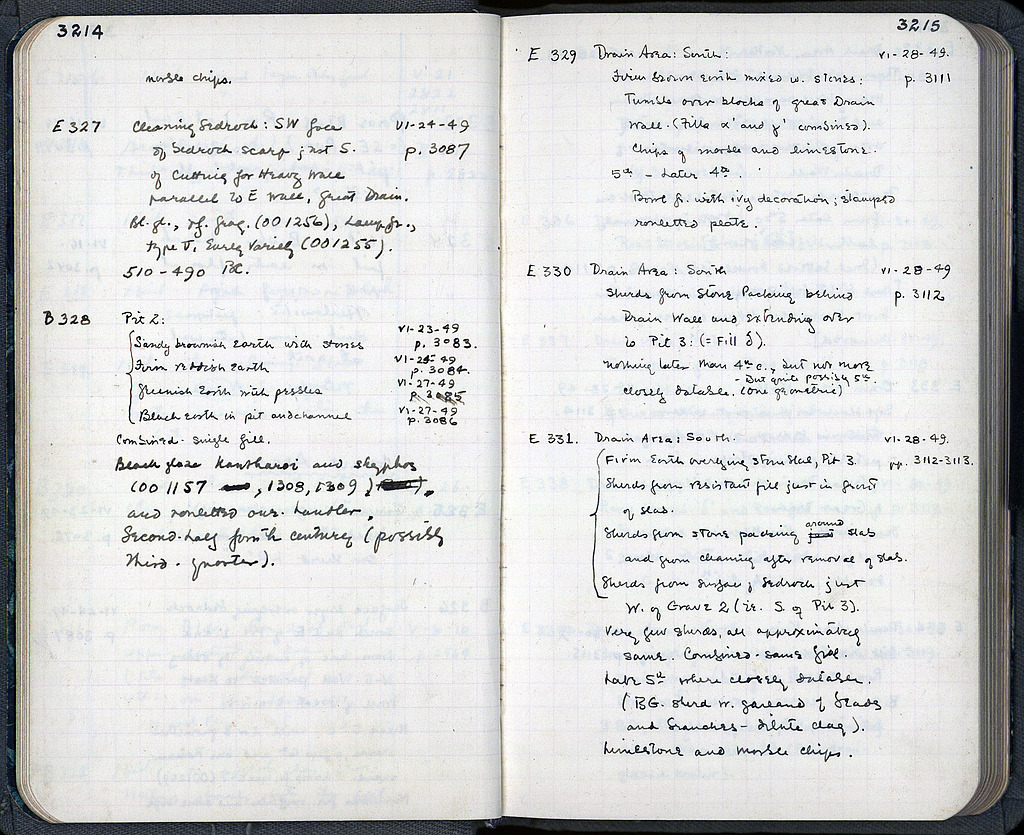 3214
marble chips.
E 327 Cleaning bedrock: SW face VI-24-49
of bedrock scarp just S. p. 3087
of cutting for Heavy Wall
parallel to E Wall, Great Drain.
Bl. gl., rf. frag. (OO 1256), Lamp fr.,
type V, Early Variety (OO 1255).
510-490 BC.
B 328 Pit 2:
VI-23-49
Sandy brownish earth with stones p. 3083.
VI-24-49
Firm reddish earth p. 3084.
VI-27-49
Greenish Earth with pebbles p. 3085
VI-27-49
Black earth in pit and channel p. 3086
Combined - single fill.
Black glaze kantharoi and skyphos
(OO 1157, 1308, 1309)
and rouletted one-handler.
Second-half fourth century (possibly
third - quarter).
3215
E 329 Drain Area: South: VI-28-49.
Firm brown earth mixed w. stones: p. 3111
Tumble over blocks of great Drain
Wall. (Fills α' and γ' combined).
Chips of marble and limestone.
5th - Later 4th.
Bowl fr. with ivy decoration; stamped
rouletted plate.
E 330 Drain Area: South VI-28-49
Sherds from Stone Packing behind p. 3112
Drain Wall and extending over
to Pit 3: (= Fill δ).
nothing later than 4th c., but not more
- But quite possibly 5th.
closely datable. (one geometric)
E 331. Drain Area: South. VI-28-49.
Firm Earth overlying stone slab, Pit 3. pp. 3112-3113.
Sherds from resistant fill just in front
of slab.
around
Sherds from stone packing slab
and from cleaning after removal of slab.
Sherds from surface of bedrock just
W. of Grave 2 (i.e. S. of Pit 3).
Very few sherds, all approximately
same. Combined - same fill.
Late 5th where closely datable.
(BG. sherd w. garland of beads
and branches - dilute clay).
Limestone and marble chips.